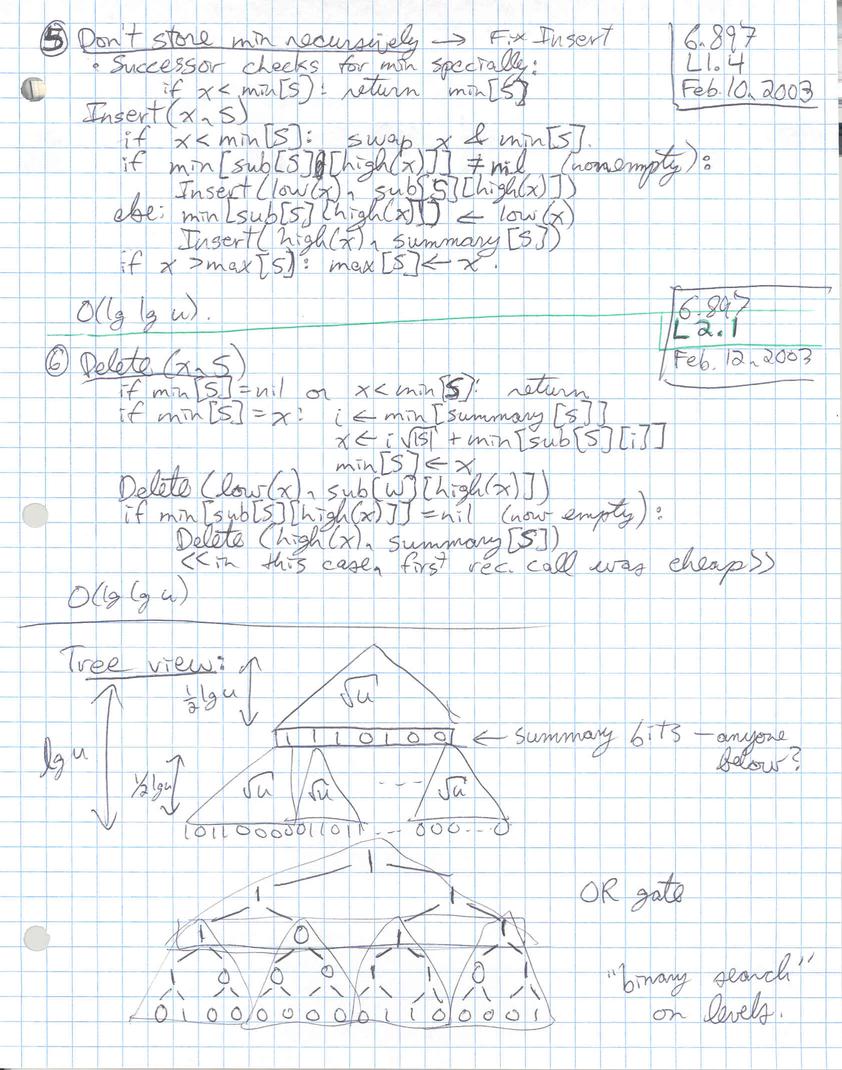 ⑤ Don't store min recursively → Fix Insert
6.897
L1.4
Feb. 10, 2003
• Successor checks for min specially:
if x < min[S]: return min[S]
Insert(x, S)
if x < min[S]: swap x & min[S].
if min[sub[S][high(x)]] ≠ nil (nonempty):
Insert(low(x), sub[S][high(x)])
else: min[sub[S][high(x)]] ← low(x)
Insert(high(x), summary[S])
if x > max[S]: max[S] ← x.
O(lg lg u).
6.897
L2.1
Feb. 12, 2003
⑥ Delete(x, S)
if min[S] = nil or x < min[S]: return
if min[S] = x: i ← min[summary[S]]
x ← i √|S| + min[sub[S][i]]
min[S] ← x
Delete(low(x), sub[W][high(x)])
if min[sub[S][high(x)]] = nil (now empty):
Delete(high(x), summary[S])
<<in this case, first rec. call was cheap>>
O(lg lg u)
Tree view:
½ lg u
√u
1 1 1 0 1 0 0 ← summary bits — anyone below?
lg u
½ lg u
√u √u --- √u
1 0 1 1 0 0 0 0 0 1 1 0 1 1 --- 0 0 0 ... 0
1
1 1
OR gate
1 0 1 1
1 0 0 0 1 1 0 1
"binary search" on levels.
0 1 0 0 0 0 0 0 0 1 1 0 0 0 0 1